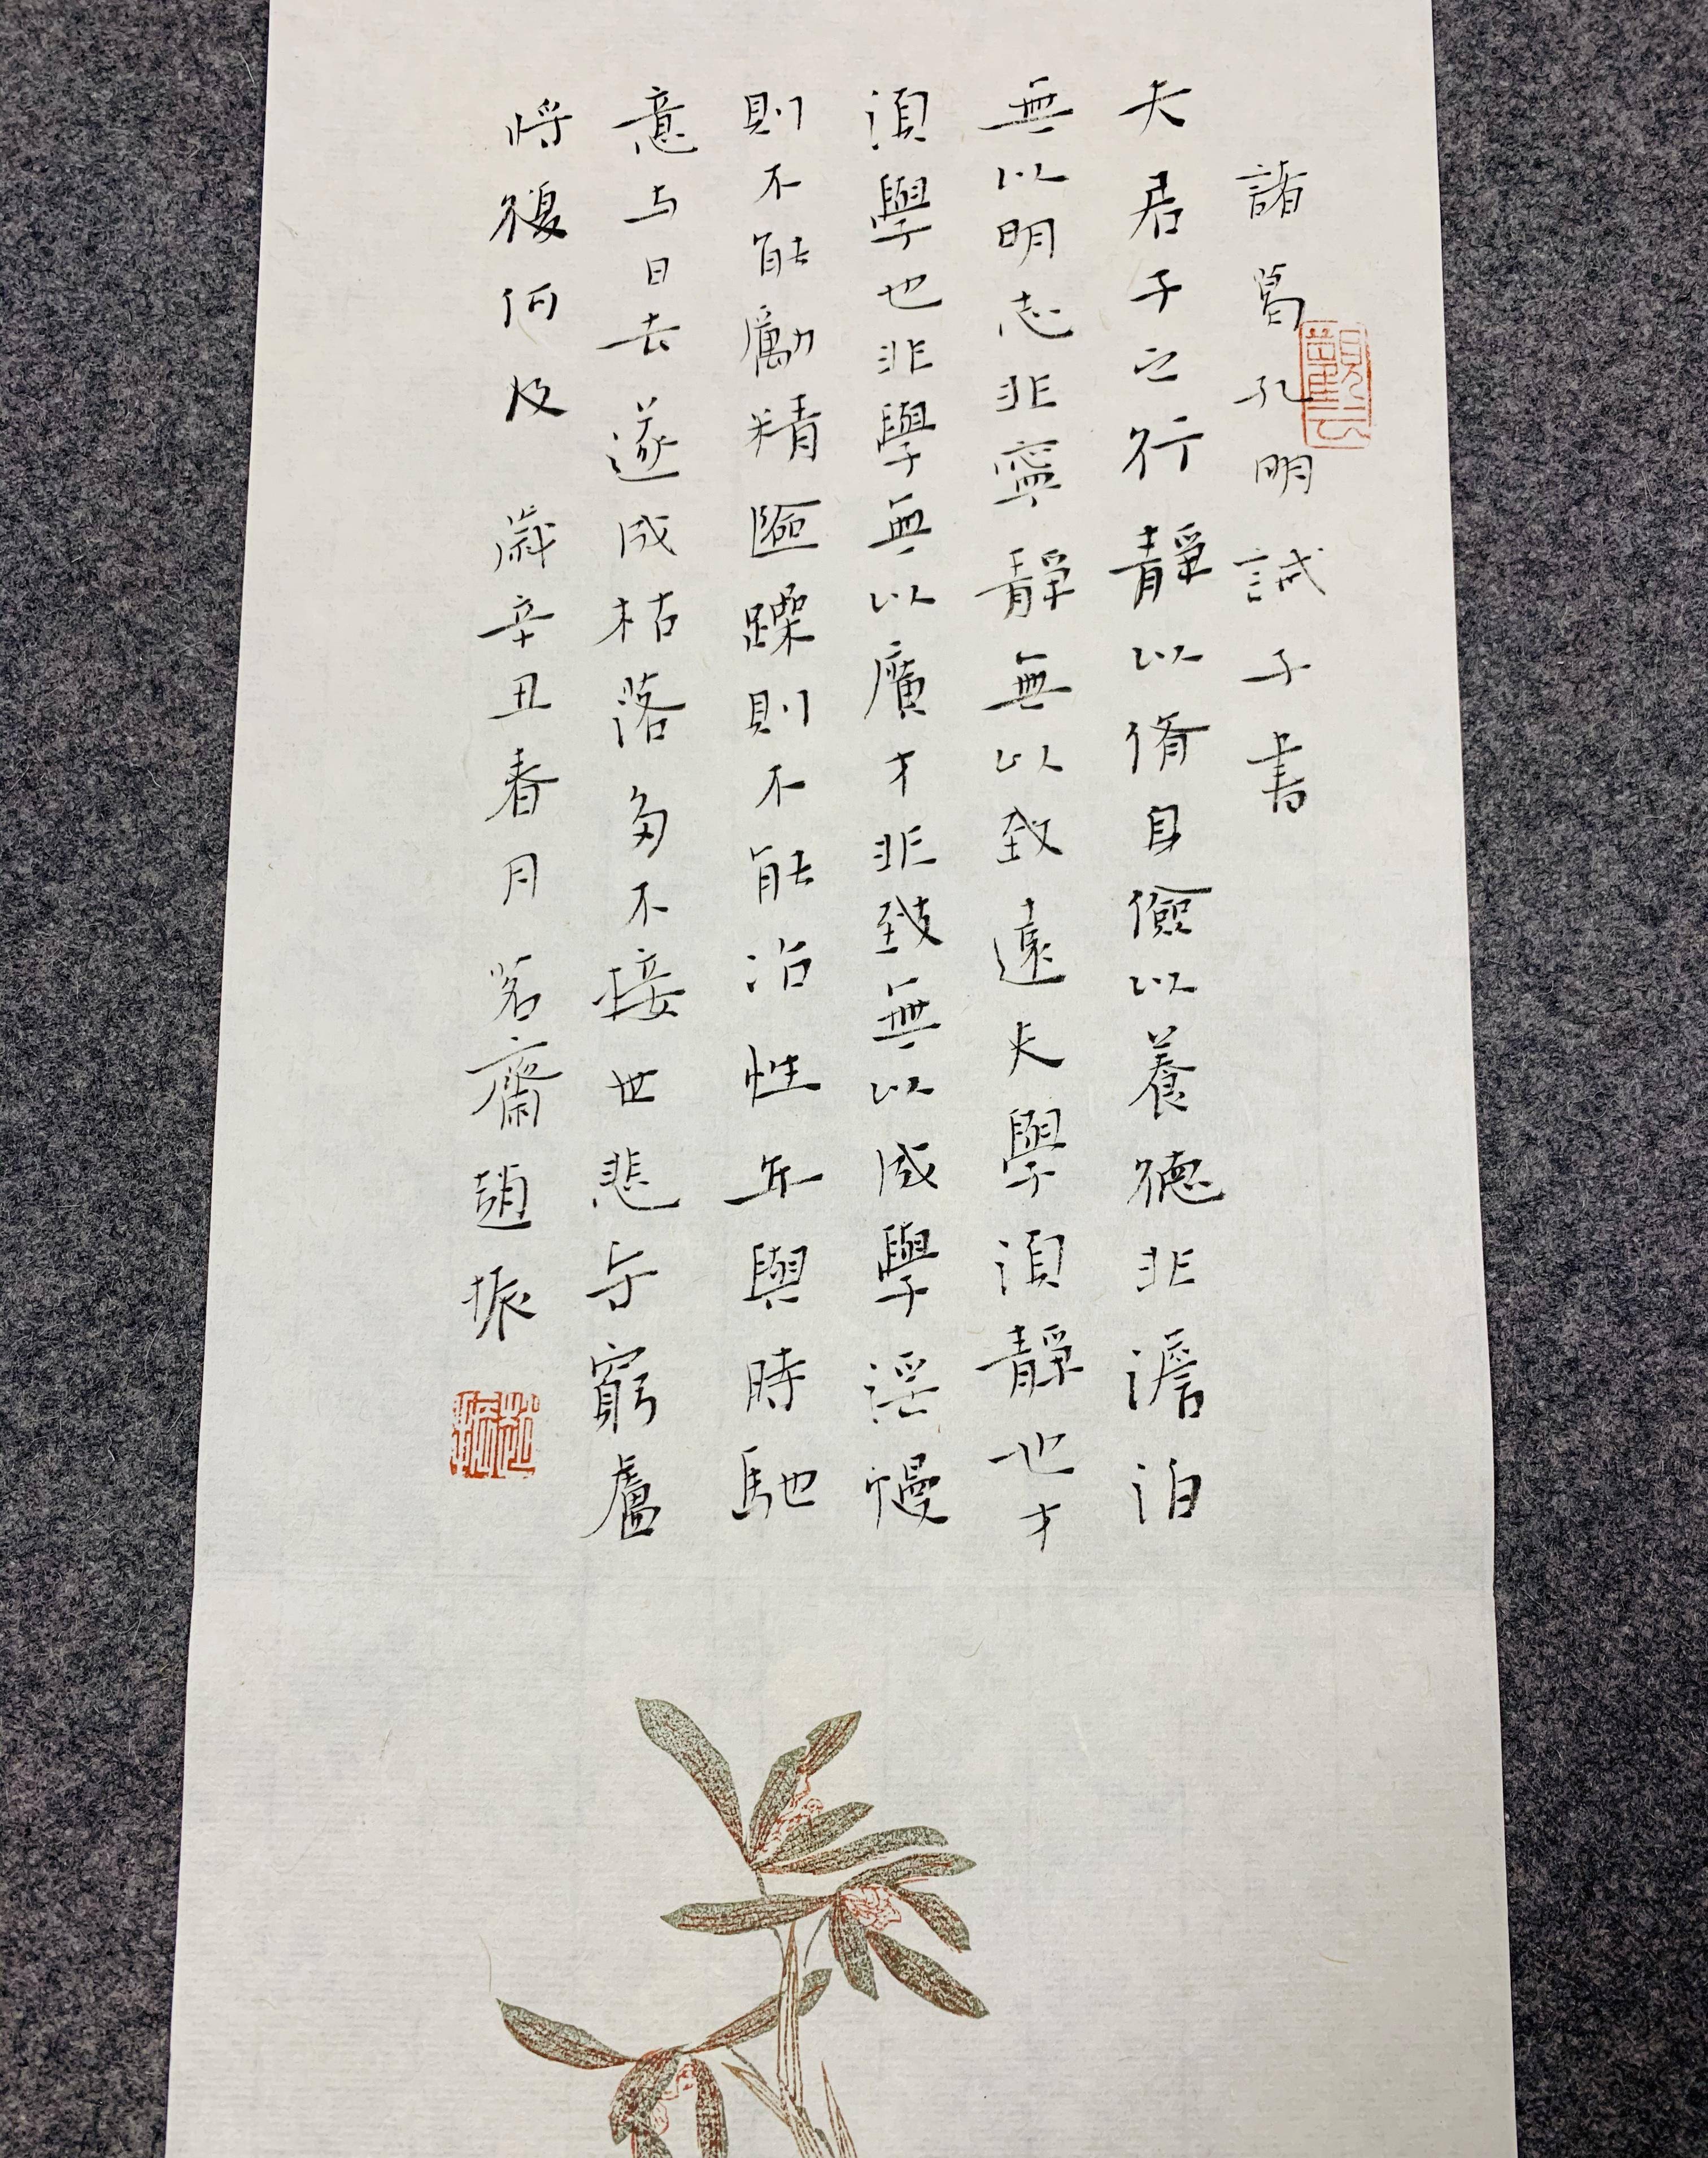 諸葛孔明誡子書
夫君子之行靜以脩身儉以養德非澹泊
無以明志非寧靜無以致遠夫學須靜也才
須學也非學無以廣才非致無以成學淫慢
則不能勵精險躁則不能治性年與時馳
意与日去遂成枯落多不接世悲守窮廬
將復何及 歲辛丑春月 茗齋趙振